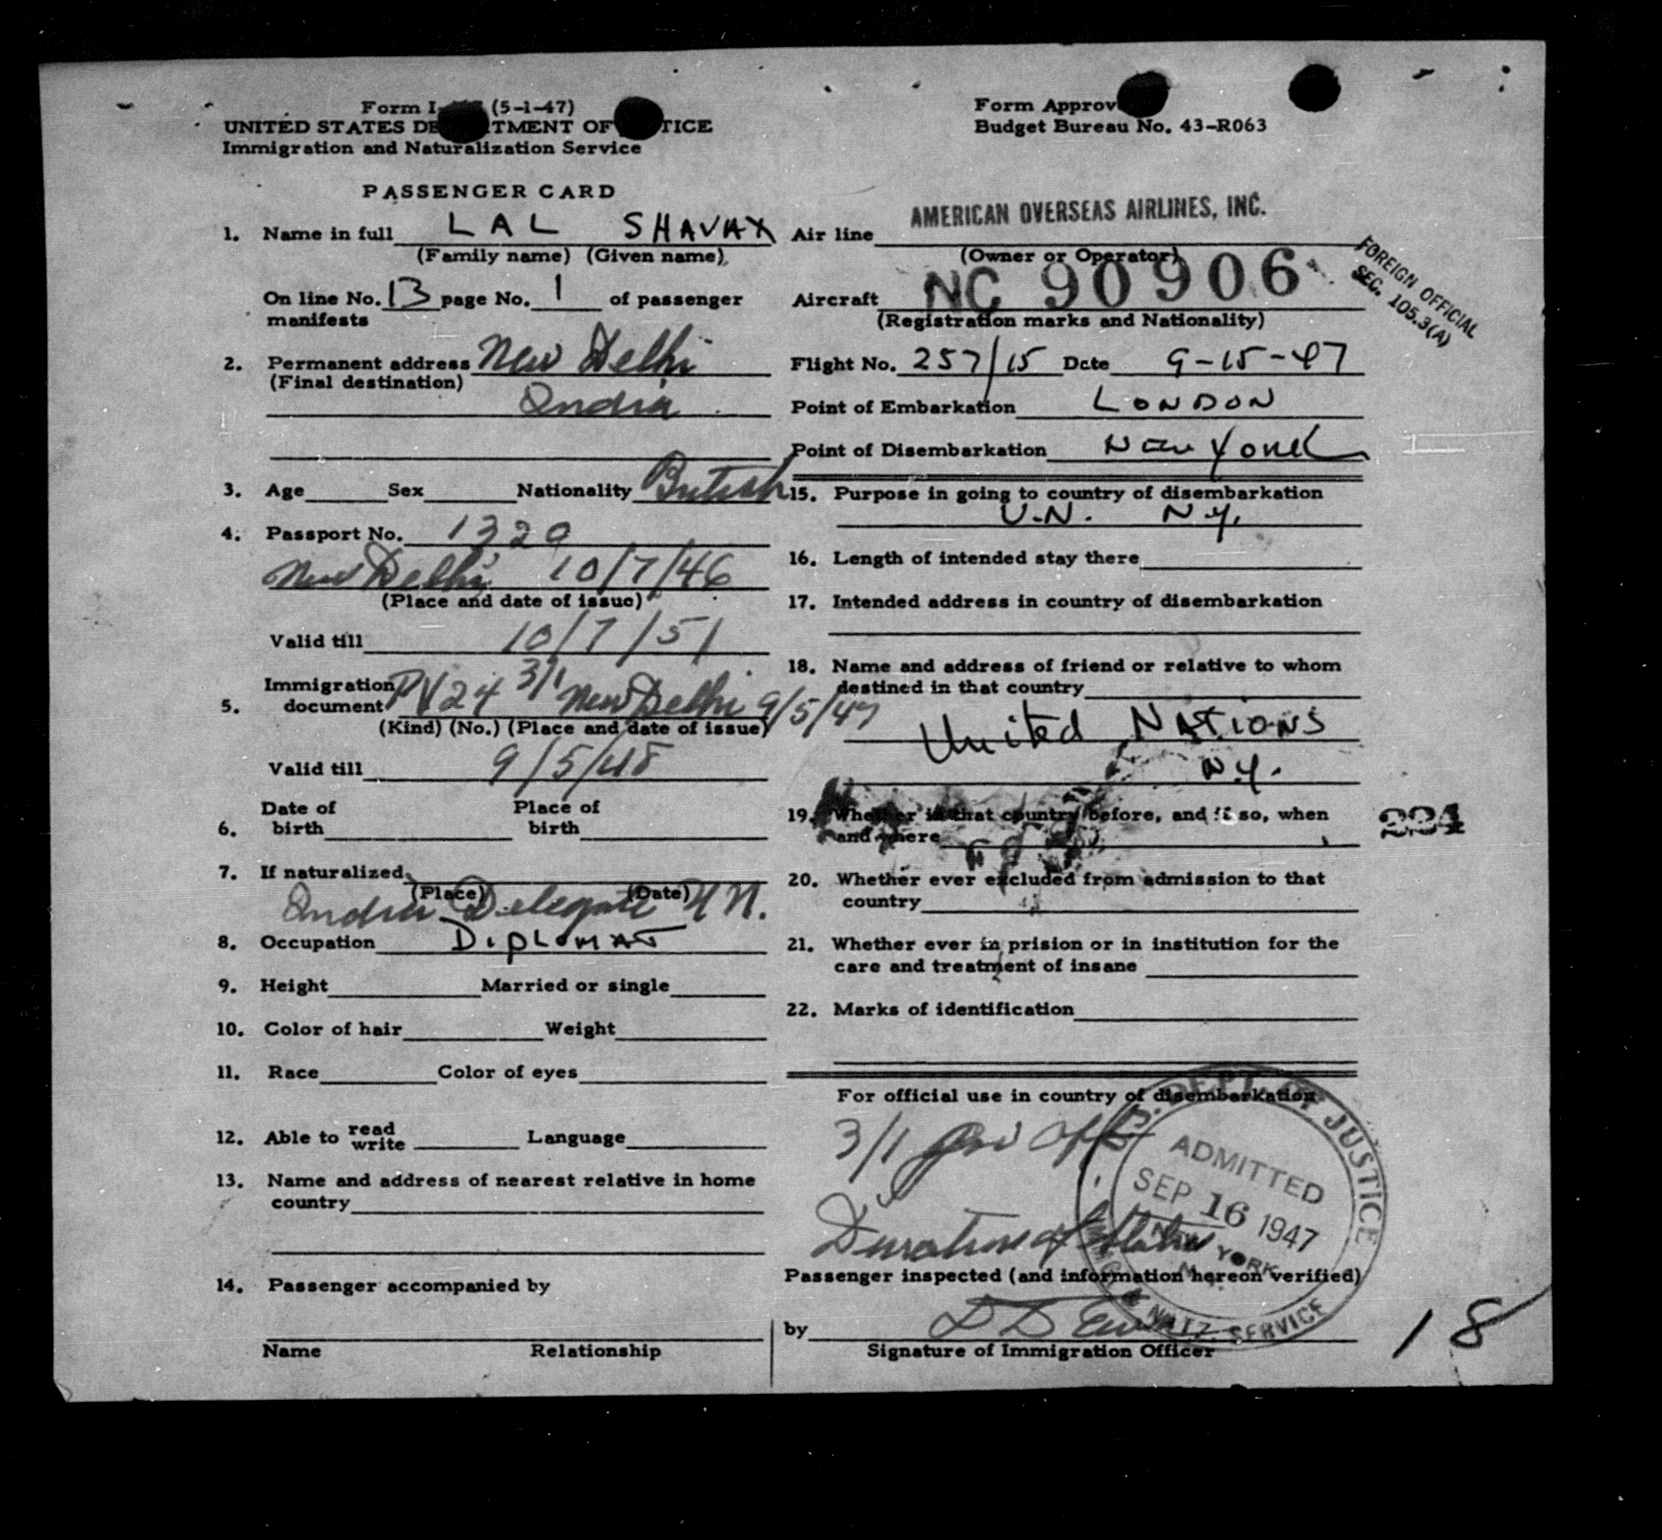 Form I- (5-1-47)
UNITED STATES DE TMENT OF TICE
Immigration and Naturalization Service
Form Approv
Budget Bureau No. 43-R063
PASSENGER CARD
1. Name in full LAL SHAVAX
(Family name) (Given name)
On line No. 13 page No. 1 of passenger
manifests
2. Permanent address New Delhi
(Final destination)
India
3. Age Sex Nationality British
4. Passport No. 1320
New Delhi 10/7/46
(Place and date of issue)
Valid till 10/7/51
5. Immigration document PV 24 3/1 New Delhi 9/5/47
(Kind) (No.) (Place and date of issue)
Valid till 9/5/48
6. Date of birth Place of birth
7. If naturalized
(Place) (Date)
India Delegate UN.
8. Occupation DIPLOMAT
9. Height Married or single
10. Color of hair Weight
11. Race Color of eyes
12. Able to read write Language
13. Name and address of nearest relative in home
country
14. Passenger accompanied by
Name Relationship
Air line AMERICAN OVERSEAS AIRLINES, INC.
(Owner or Operator)
Aircraft NC 90906
(Registration marks and Nationality)
FOREIGN OFFICIAL
SEC. 105.3(A)
Flight No. 257/15 Date 9-15-47
Point of Embarkation LONDON
Point of Disembarkation New York
15. Purpose in going to country of disembarkation
U.N. N.Y.
16. Length of intended stay there
17. Intended address in country of disembarkation
18. Name and address of friend or relative to whom
destined in that country
United NATIONS
N.Y.
19. Whether in that country before, and if so, when
and where
224
20. Whether ever excluded from admission to that
country
21. Whether ever in prision or in institution for the
care and treatment of insane
22. Marks of identification
For official use in country of disembarkation
3/1
Duration of Status
DEPT. OF JUSTICE
ADMITTED
SEP 16 1947
NEW YORK
N.Y.
& NATZ. SERVICE
Passenger inspected (and information hereon verified)
by
Signature of Immigration Officer
18